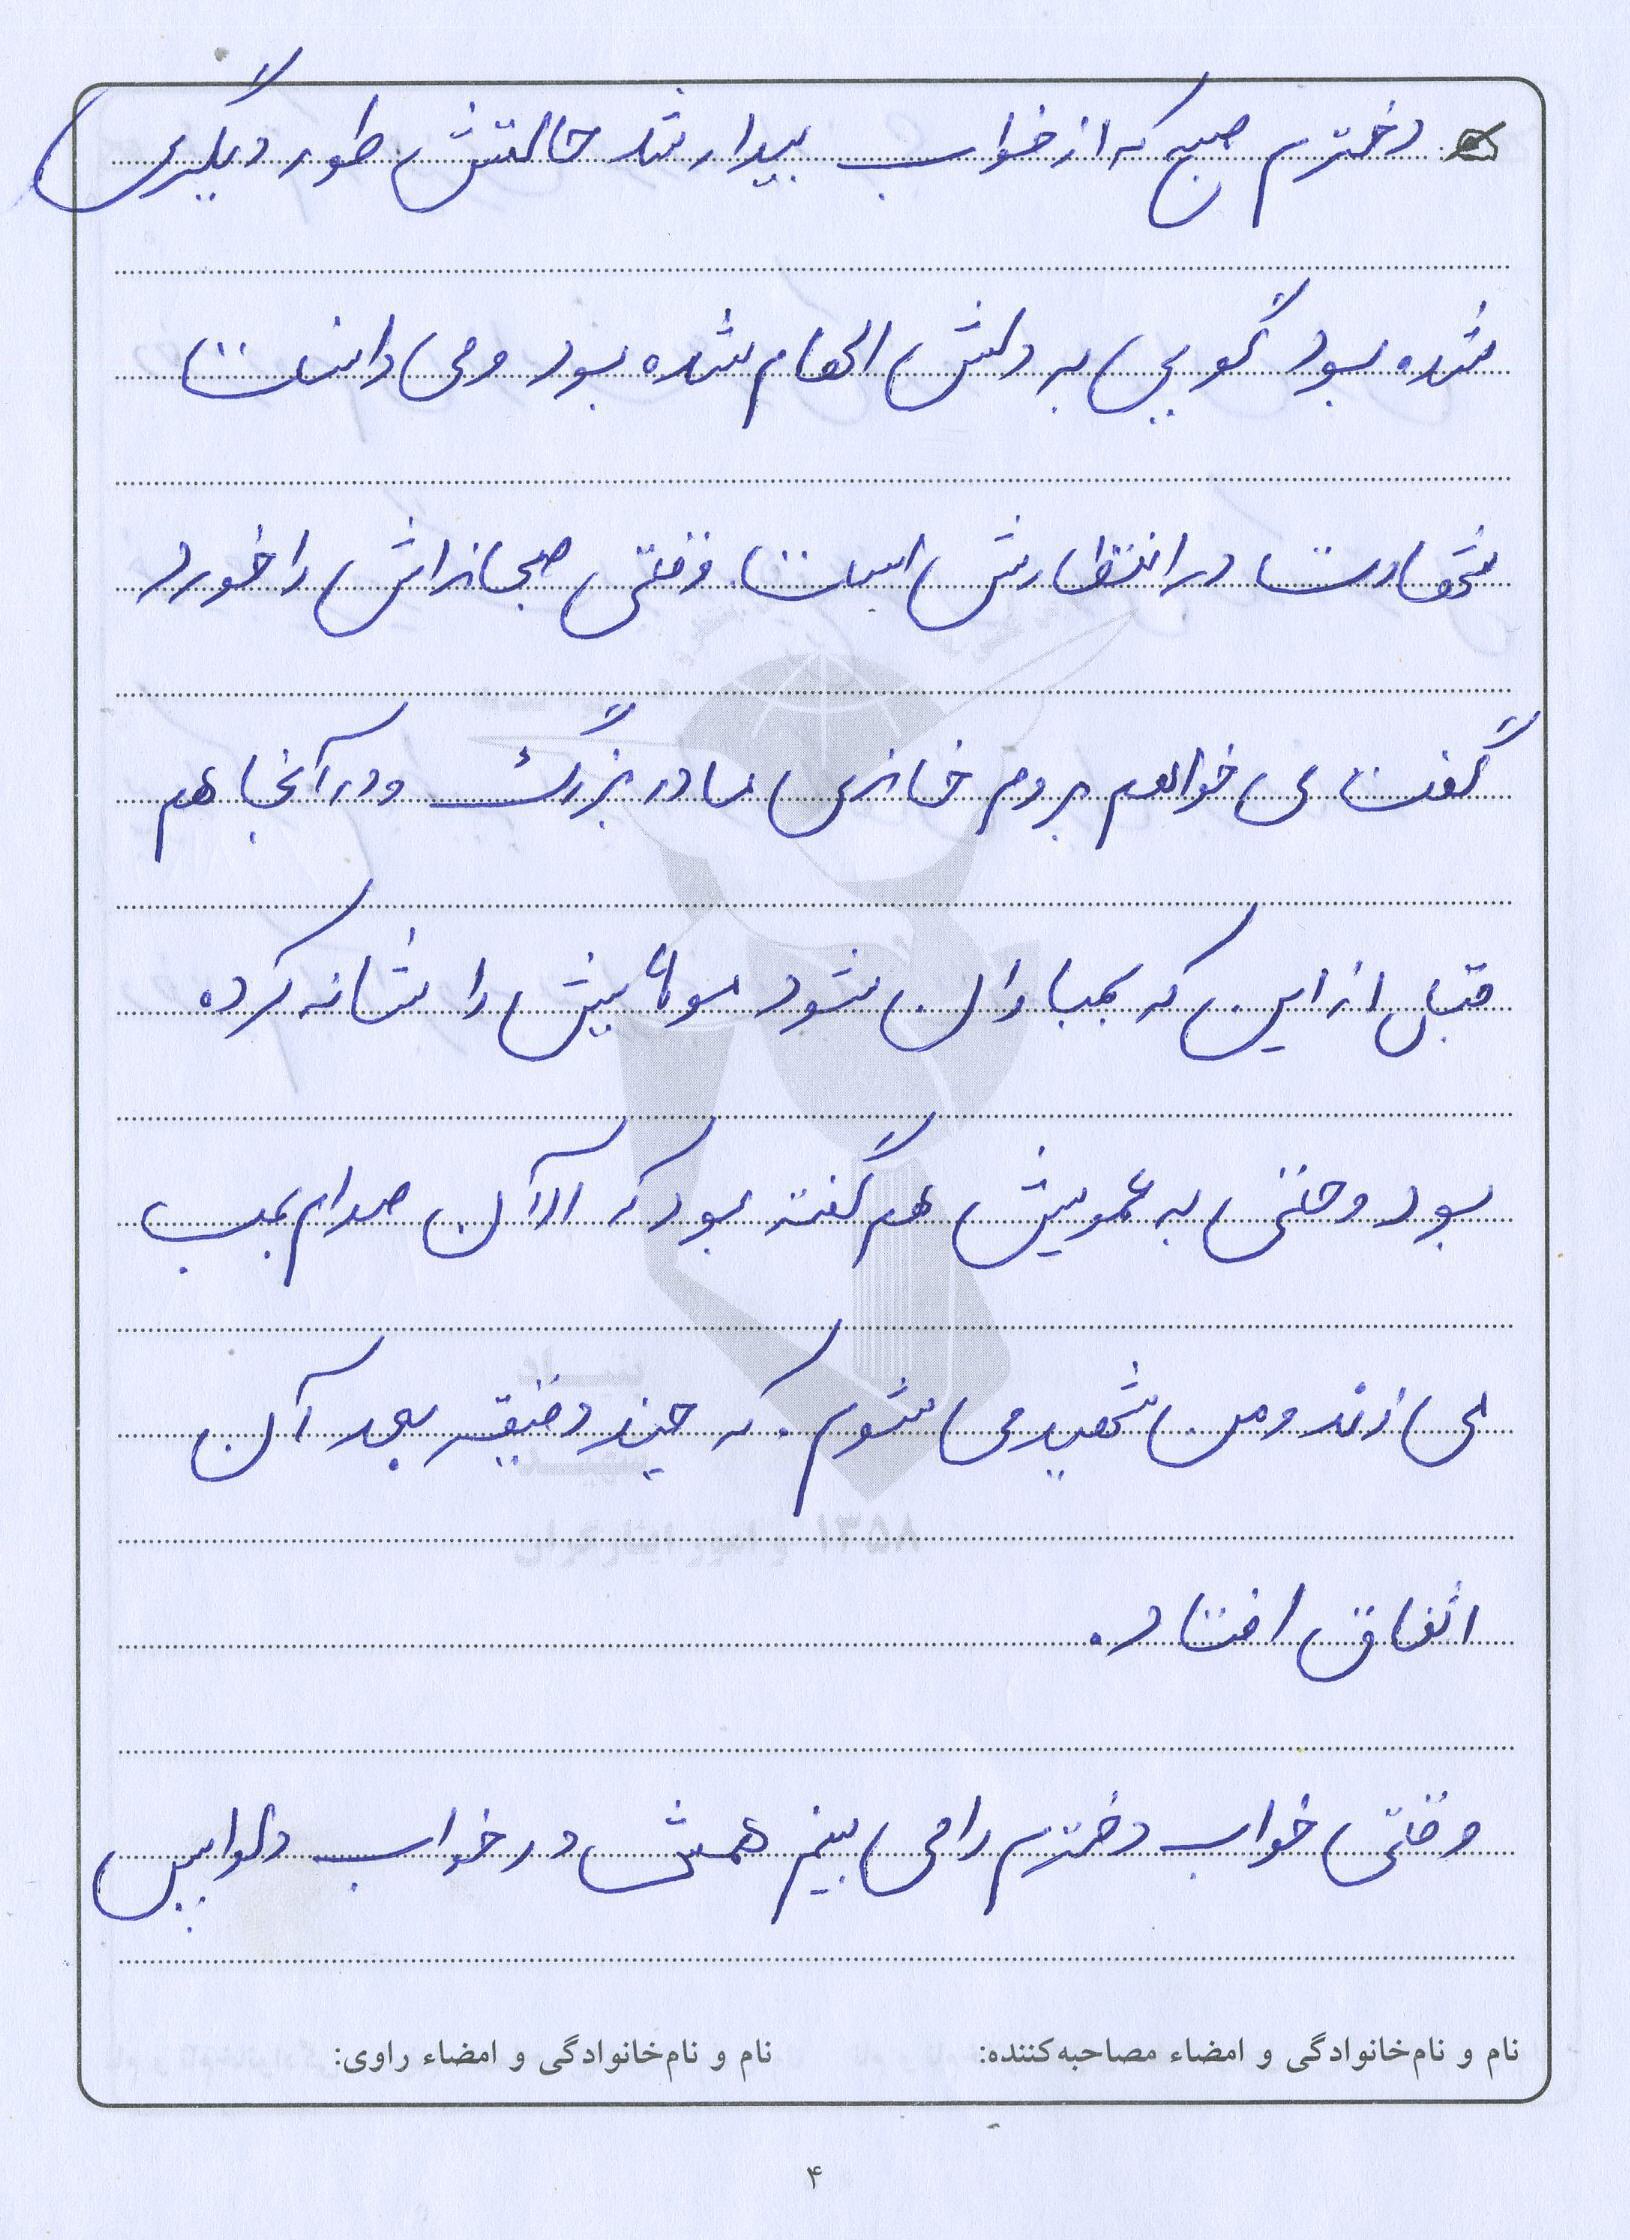 دخترم صبح که از خواب بیدار شد حالتش طور دیگری
شده بود گویی به دلش الهام شده بود و می دانست
شهادت در انتظارش است وقتی صبحانه اش را خورد
گفت می خواهم بروم خانه ی مادر بزرگ و در آنجا هم
قبل از این که بمباران شود موهایش را شانه کرده
بود و حتی به عمویش هم گفته بود که الاآن صدام بمب
می زند و من شهید می شوم. که چند دقیقه بعد آن
اتفاق افتاد.
وقتی خواب دخترم را می بینم همش در خواب دلواپس
نام و نام‌خانوادگی و امضاء مصاحبه‌کننده: نام و نام‌خانوادگی و امضاء راوی:
۴
بنیاد
شهید
و امور ایثارگران
۱۳۵۸